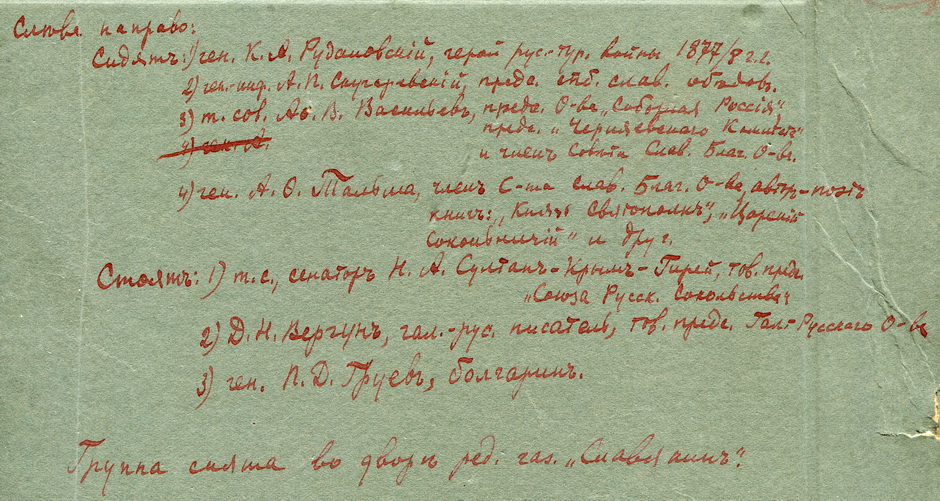 Слѣва направо:
Сидятъ: 1) ген. К. А. Рудановскій, герой рус.-тур. войны 1877/8 г.г.
2) ген.-инф. А. П. Скугаревскій, предс. спб. слав. обѣдовъ.
3) т. сов. Аѳ. В. Васильевъ, предс. О-ва „Соборная Россія",
предс. „Черняевскаго Комитета"
и членъ Совѣта Слав. Благ. О-ва.
4) ген. А.
4) ген. А. Ѳ. Тальма, членъ С-та слав. Благ. О-ва, автор-поэтъ
книгъ: „Князь Святополкъ", „Царскій
Сокольничій" и друг.
Стоятъ: 1) т. с., сенаторъ Н. А. Султанъ-Крымъ-Гирей, тов. предс.
„Союза Русск. Сокольства"
2) Д. Н. Вергунъ, гал.-рус. писатель, тов. предс. Гал.-Русскаго О-ва
3) ген. П. Д. Груевъ, болгаринъ.
Группа снята во дворѣ ред. газ. „Славянинъ".